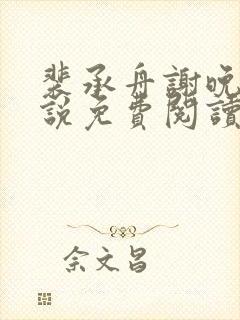 裴承舟謝晚
說免費閱讀
余文昌